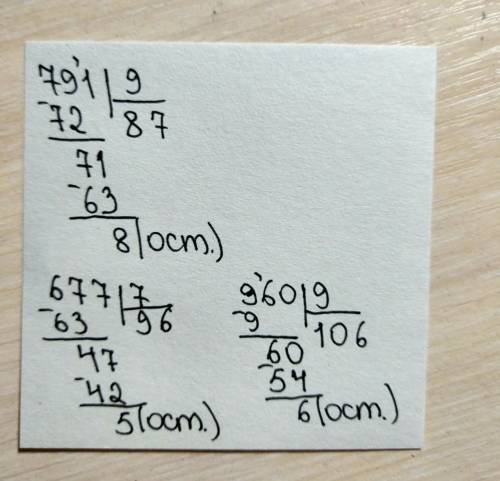 791 | 9
-72 87
71
-63
8 (ост.)
677 | 7
-63 96
47
-42
5 (ост.)
960 | 9
-9 106
60
-54
6 (ост.)